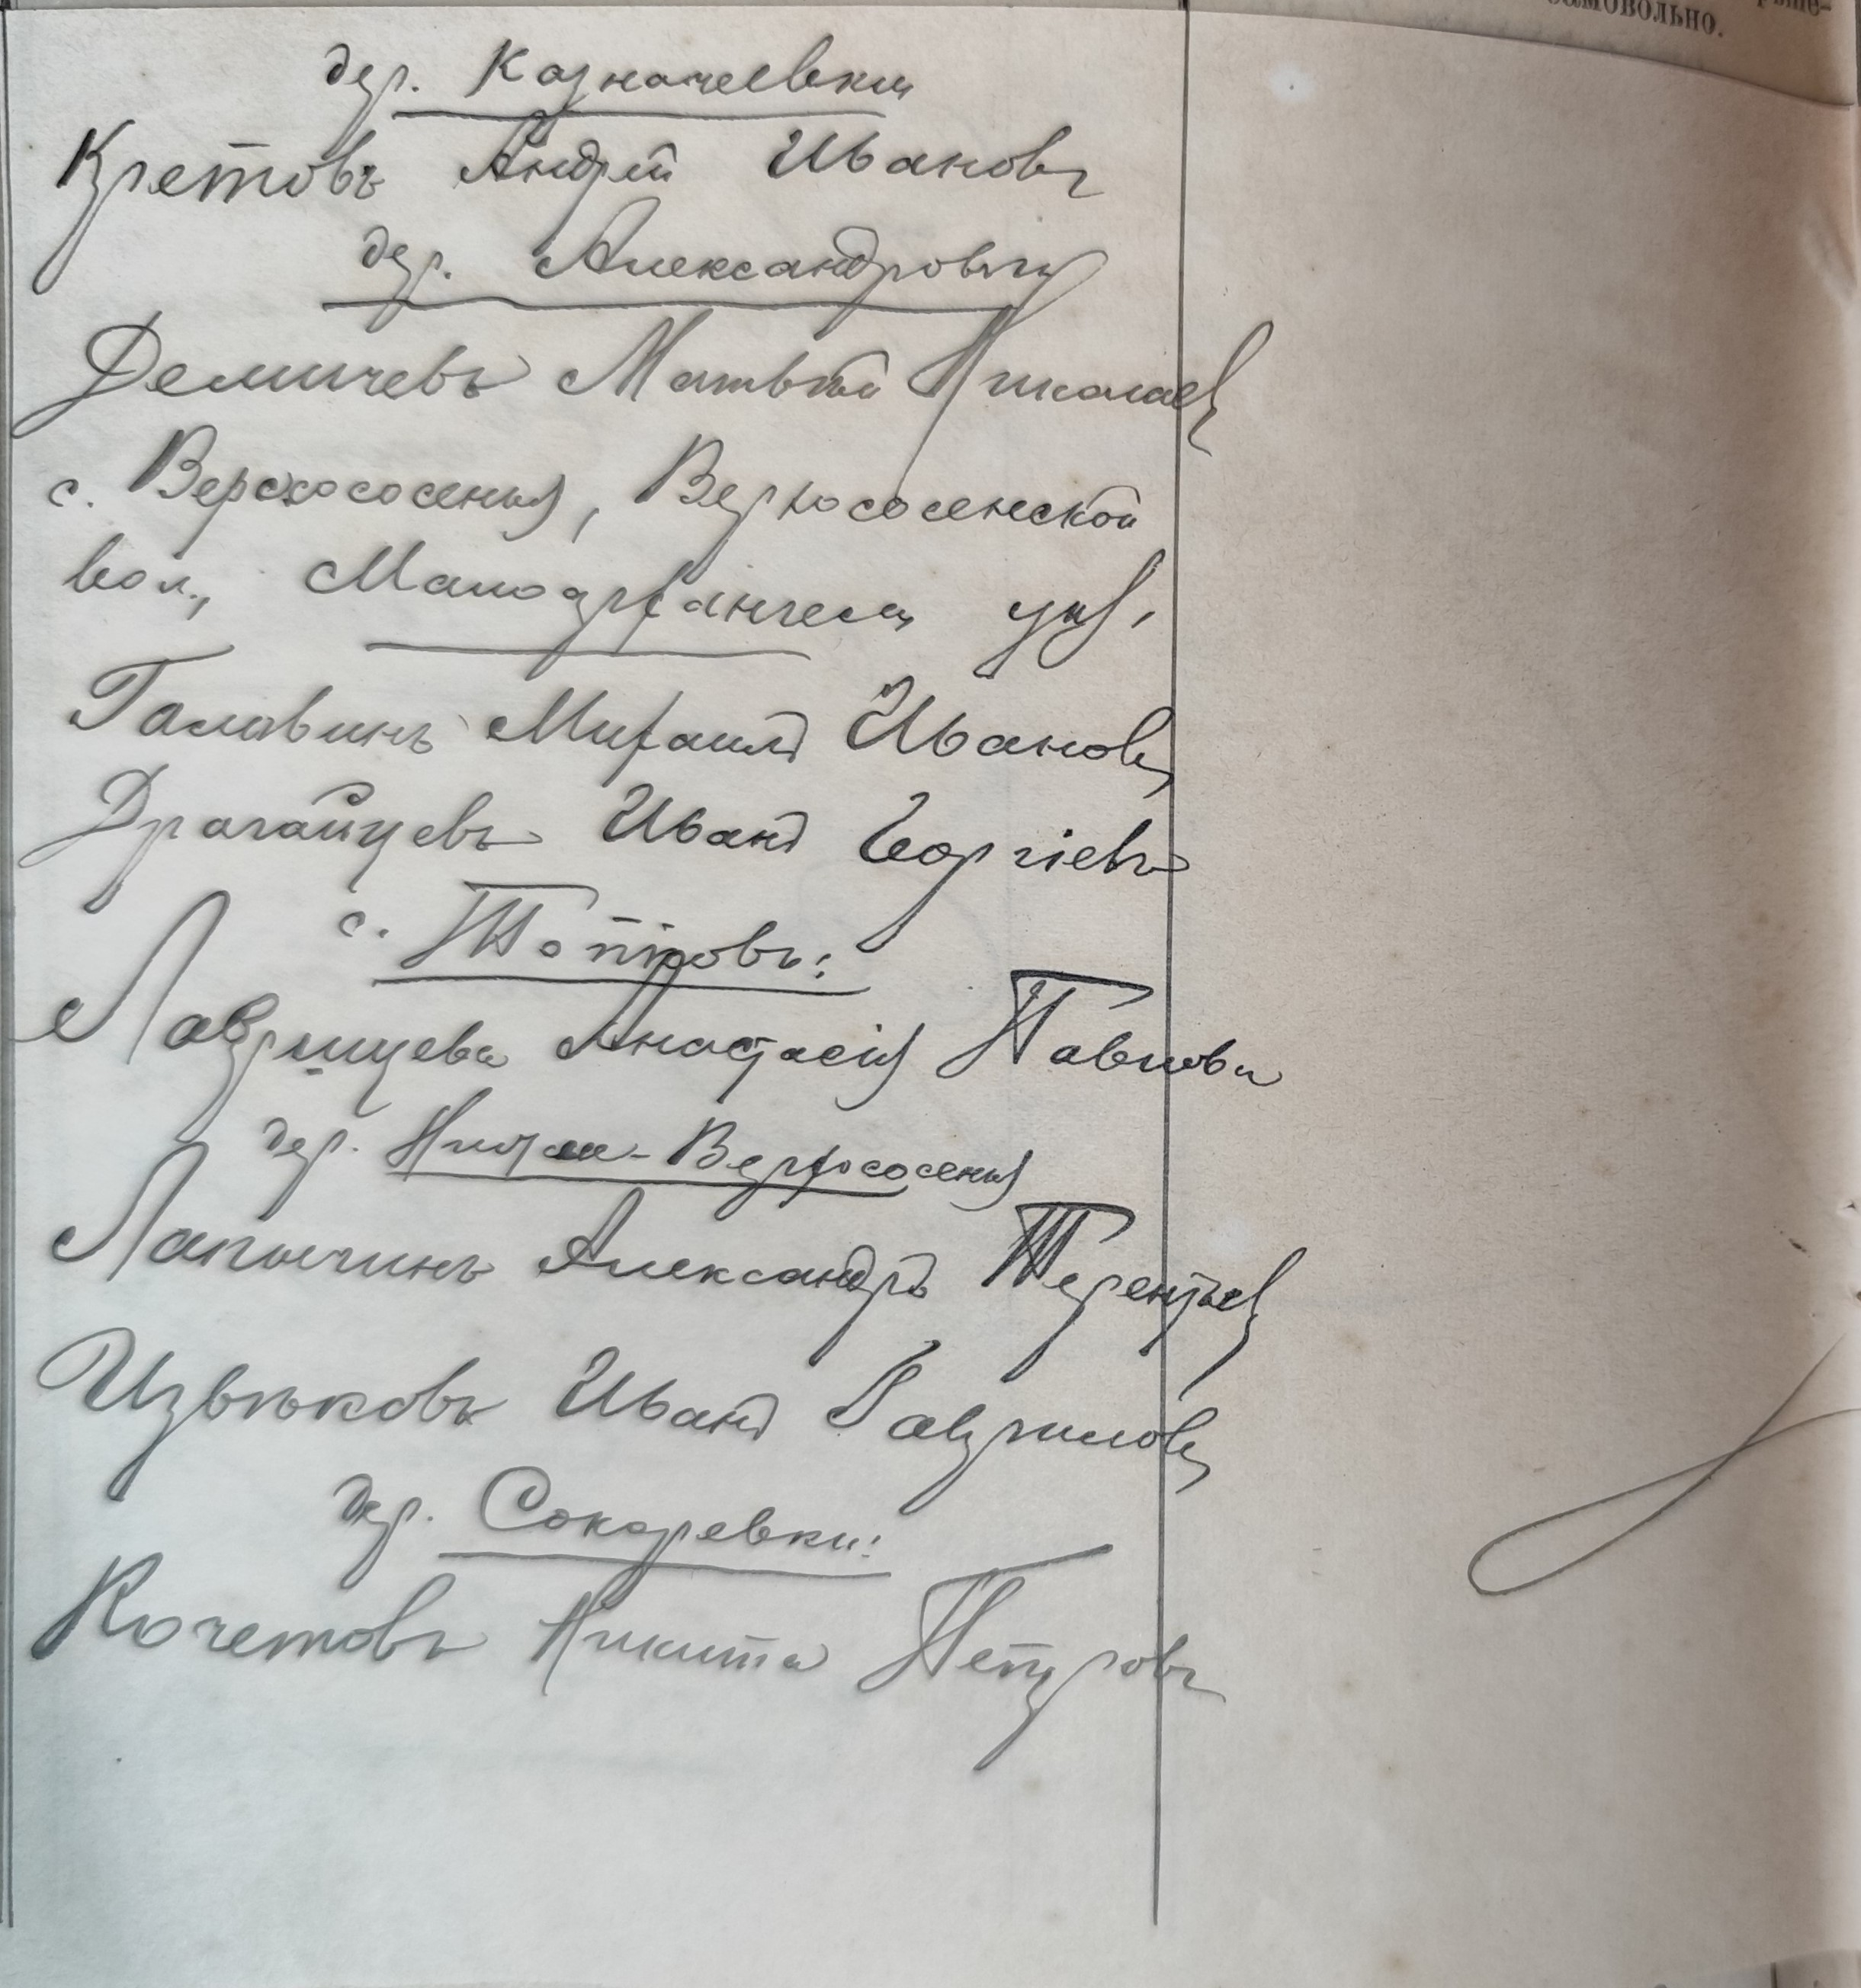 самовольно.
дер. Казначеевки
Кретовъ Андрей Ивановъ
дер. Александровки
Демичевъ Матвѣй Николаев
с. Верхососенья, Верхососенской
вол., Малоархангел уѣз.
Голавинъ Михаилъ Ивановъ
Драгайцевъ Иванъ Георгіевъ
с. Топковъ:
Лаврищева Анастасія Павлова
дер. Нижн Верхососенья
Лапочкинъ Александръ Терентьев
Извѣковъ Иванъ Гавриловъ
дер. Сокоревки:
Кочетовъ Никита Петровъ